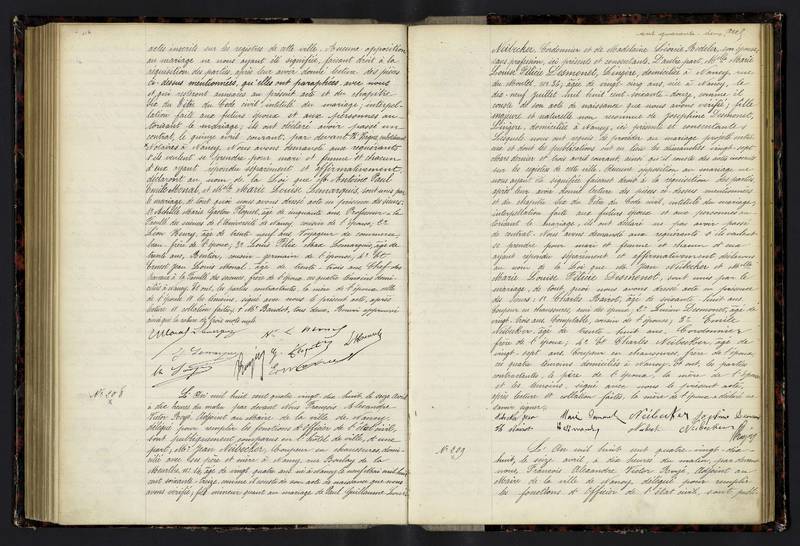 actes inscrits sur les registres de cette ville. Aucune opposition
au mariage ne nous ayant été signifiée, faisant droit à la
réquisition des parties, après leur avoir donné lecture des pièces
ci-dessus mentionnées, qu'elles ont paraphées, avec nous
et qui resteront annexées au présent acte et du chapitre
six du Titre du Code civil intitulé du mariage; interpel-
lation faite aux futurs époux et aux personnes au
torisant le mariage, ils ont déclaré avoir passé un
contrat, le quinze avril courant, par devant
Notaires à Nancy. Nous avons demandé aux requérants
s'ils veulent se prendre pour mari et femme et chacun
d'eux ayant répondu séparément et affirmativement,
déclarons au nom de la Loi que Antoine Paul
Emile Monal, et Mlle Marie Louise Lemarquis, sont unis par
le mariage, de tout quoi nous avons dressé acte en présence de
Achille Marie Gaston Floquet, âgé de cinquante ans Professeur à la
faculté des sciences de l'Université de Nancy, cousin de l'époux; 2e
Léon Henry, âgé de trente neuf ans, Voyageur de commerce,
beau frère de l'époux; 3e Louis Félix Lemarquis, âgé de
trente ans, Rentier, cousin germain de l'épouse; 4e et
Ernest Jean Louis Monal, âgé de trente trois ans Chef des
travaux à la Faculté des sciences, frère de l'époux, ces quatre témoins domi-
ciliés à Nancy. Et ont, les parties contractantes, la mère de l'époux
de l'épouse et les témoins, signé avec nous le présent acte, après
lecture et collation faites,
N° 208
L'An mil huit cent quatre vingt dix huit, le seize avril
à dix heures du matin par devant Nous François Alexandre
Victor Royé, Adjoint au Maire de la ville de Nancy,
délégué pour remplir les fonctions d'Officier de l'état civil,
sont publiquement comparus en l'hôtel de ville, d'une
part, Mr Jean Neibecker, Coupeur en chaussures, domi-
cilié avec ses père et mère à Nancy, rue
No 14, âgé de vingt quatre ans né à Nancy le
soixante treize, comme il conste de son acte de naissance que nous
avons vérifié; fils mineur quant au mariage de Paul Guillaume
Neibecker, Cordonnier et de Madelaine son épouse,
sans profession, ici présents et consentants. D'autre part, Mlle Marie
Louise Félicie Desmonet, Lingère, domiciliée à Nancy, rue
No 34, âgée de vingt cinq ans, née à Nancy, le
dix neuf juillet mil huit cent soixante douze, comme il
conste de son acte de naissance que nous avons vérifié; fille
majeure et naturelle non reconnue de Joséphine Desmonet,
Lingère, domiciliée à Nancy, ici présente et consentante.
Lesquels nous ont requis de procéder au mariage projeté entre
eux et dont les publications ont eu lieu les dimanches vingt-sept
mars dernier et trois avril courant, ainsi qu'il conste des actes inscrits
sur les registres de cette ville. Aucune opposition au mariage ne
nous ayant été signifiée faisant droit à la réquisition des parties
après leur avoir donné lecture des pièces ci-dessus mentionnées
et du chapitre six du Titre du Code civil, intitulé du mariage;
interpellation faite aux futurs époux et aux personnes au-
torisant le mariage, ils ont déclaré ne pas avoir passé
de contrat. Nous avons demandé aux requérants s'ils veulent
se prendre pour mari et femme et chacun d'eux
ayant répondu séparément et affirmativement déclarons
au nom de la Loi que Mr Jean Neibecker et Mlle
Marie Louise Félicie Desmonet, sont unis par le
mariage, de tout quoi nous avons dressé acte en présence
de Charles Barot, âgé de soixante huit ans,
Coupeur en chaussures, ami de l'époux; 2e Lucien Desmonet, âgé de
vingt trois ans, Comptable, cousin de l'épouse; 3e Emile
Neibecker, âgé de trente huit ans, Cordonnier
frère de l'époux; 4e Et Charles Neibecker, âgé de
vingt sept ans Coupeur en chaussures, frère de l'époux
ces quatre témoins domiciliés à Nancy. Et ont, les parties
contractantes, le père de l'époux, la mère de l'épouse
et les témoins, signé avec nous le présent acte,
après lecture et collation faites, la mère de l'époux a déclaré ne
savoir signer.
N° 209
L'An mil huit cent quatre-vingt-dix-
huit, le seize avril, à dix heures du matin, par devant
nous, François Alexandre Victor Royé, Adjoint au
Maire de la ville de Nancy, délégué pour remplir
les fonctions d'Officier de l'état civil, sont publi-